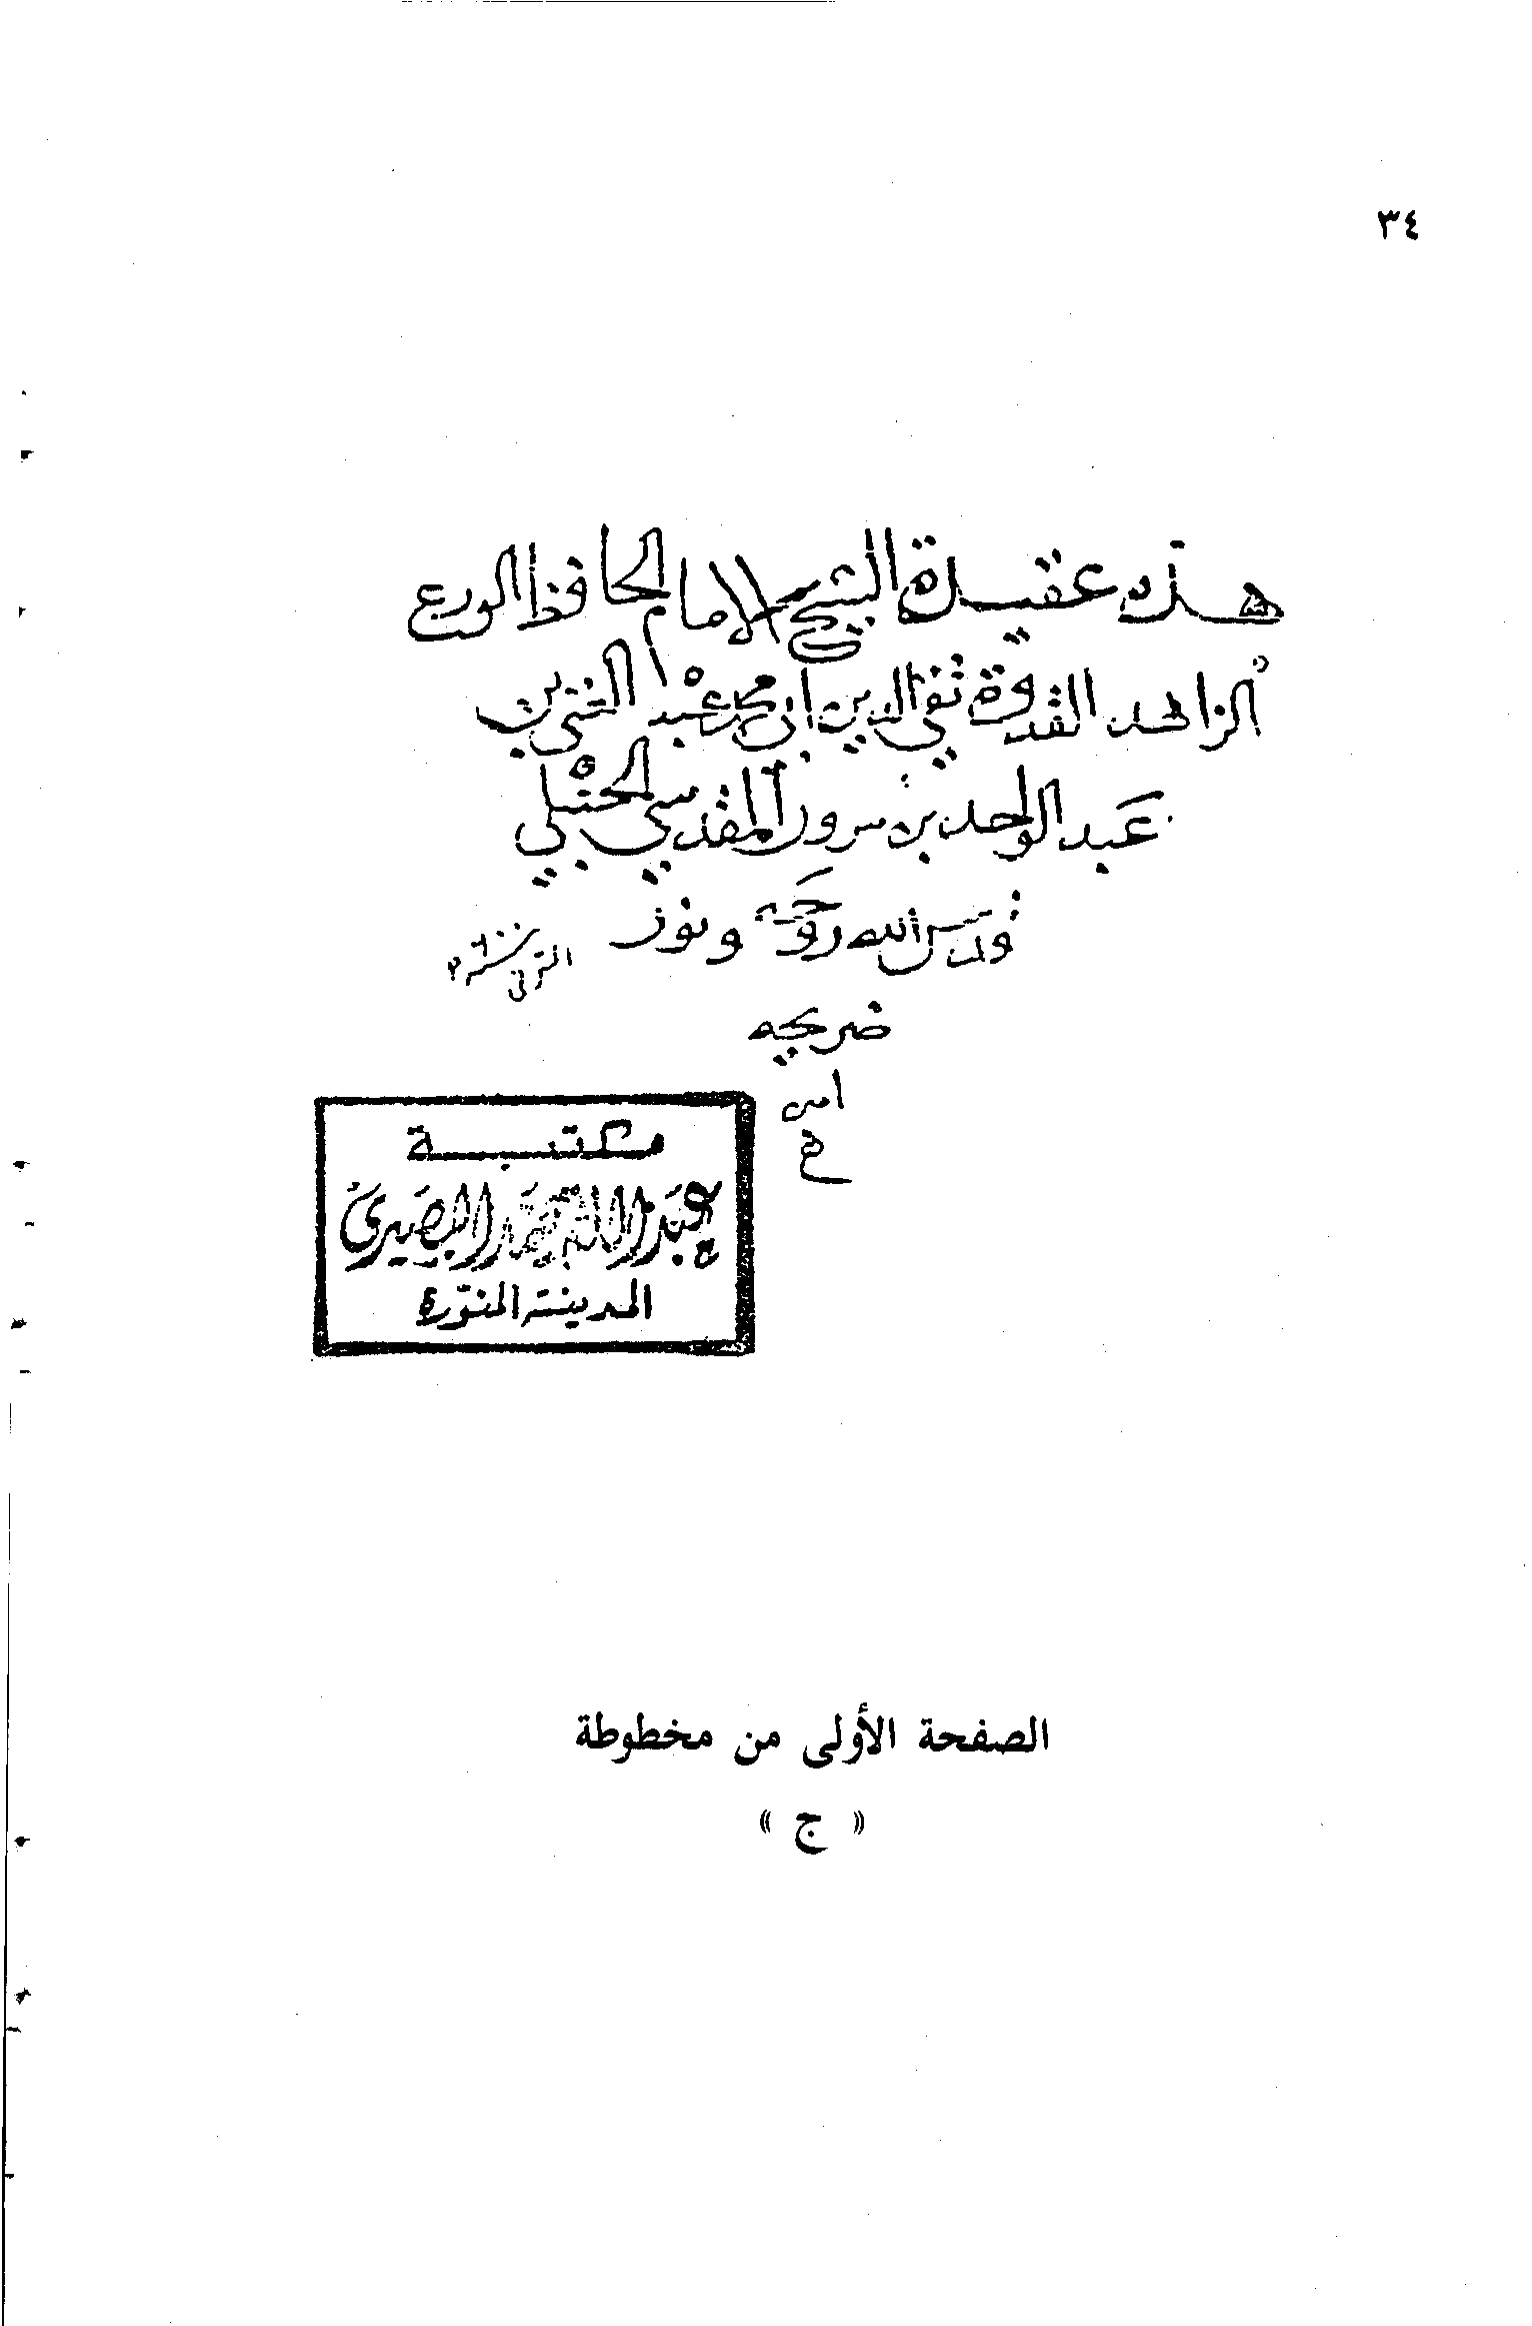 ٣٤
هذه عقيدة الشيخ الامام الحافظ الورع
الزاهد القدوة تقي الدين ابي محمد عبد الغني بن
عبد الواحد بن سرور المقدسي الحنبلي
قدس الله روحه ونور
ضريحه
امين
م
مكتبة
عبد الله محمد البصيري
المدينة المنوّرة
الصفحة الأولى من مخطوطة
« ج »